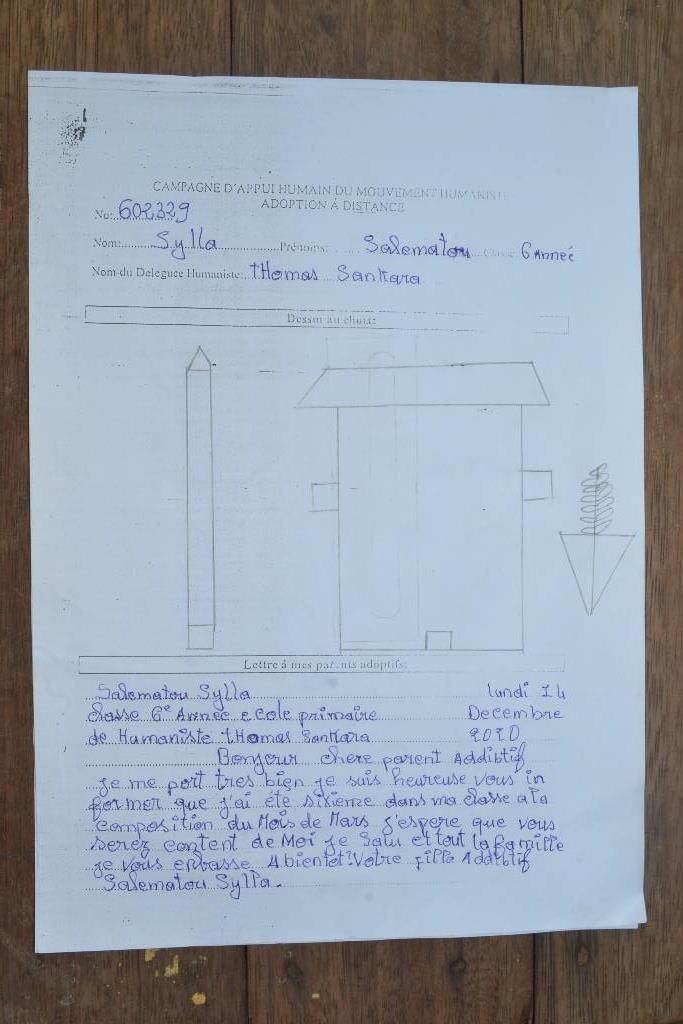 CAMPAGNE D'APPUI HUMAIN DU MOUVEMENT HUMANISTE
ADOPTION À DISTANCE
No: 602329
Nom: Sylla Prénoms: Salematou Classe 6 Année
Nom du Deleguee Humaniste: tHomas Sankara
Dessin au choix:
Lettre à mes parents adoptifs:
Salematou Sylla lundi 14
classe 6e Année ecole primaire Decembre
de Humaniste tHomas Sankara 2020
Bonjour chere parent Addibtif
je me port tres bien je suis heureuse vous in
former que j'ai éte sixieme dans ma classe a la
composition du Mois de Mars j'espere que vous
serez content de Moi je Salu et tout la famille
je vous enbasse A bientet! Votre fille Addibtif
Salematou Sylla.